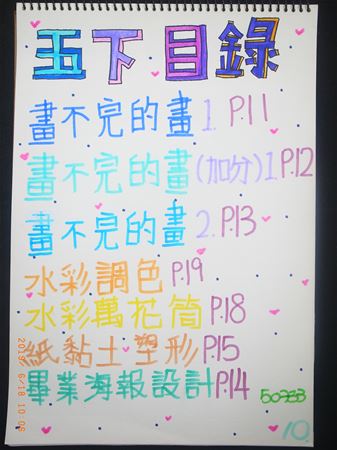 五下目錄
畫不完的畫1. P.11
畫不完的畫(加分)1 P.12
畫不完的畫2. P.13
水彩調色P.19
水彩萬花筒P.18
紙黏土塑形P.15
畢業海報設計P.14
10
2019/6/18 10:06